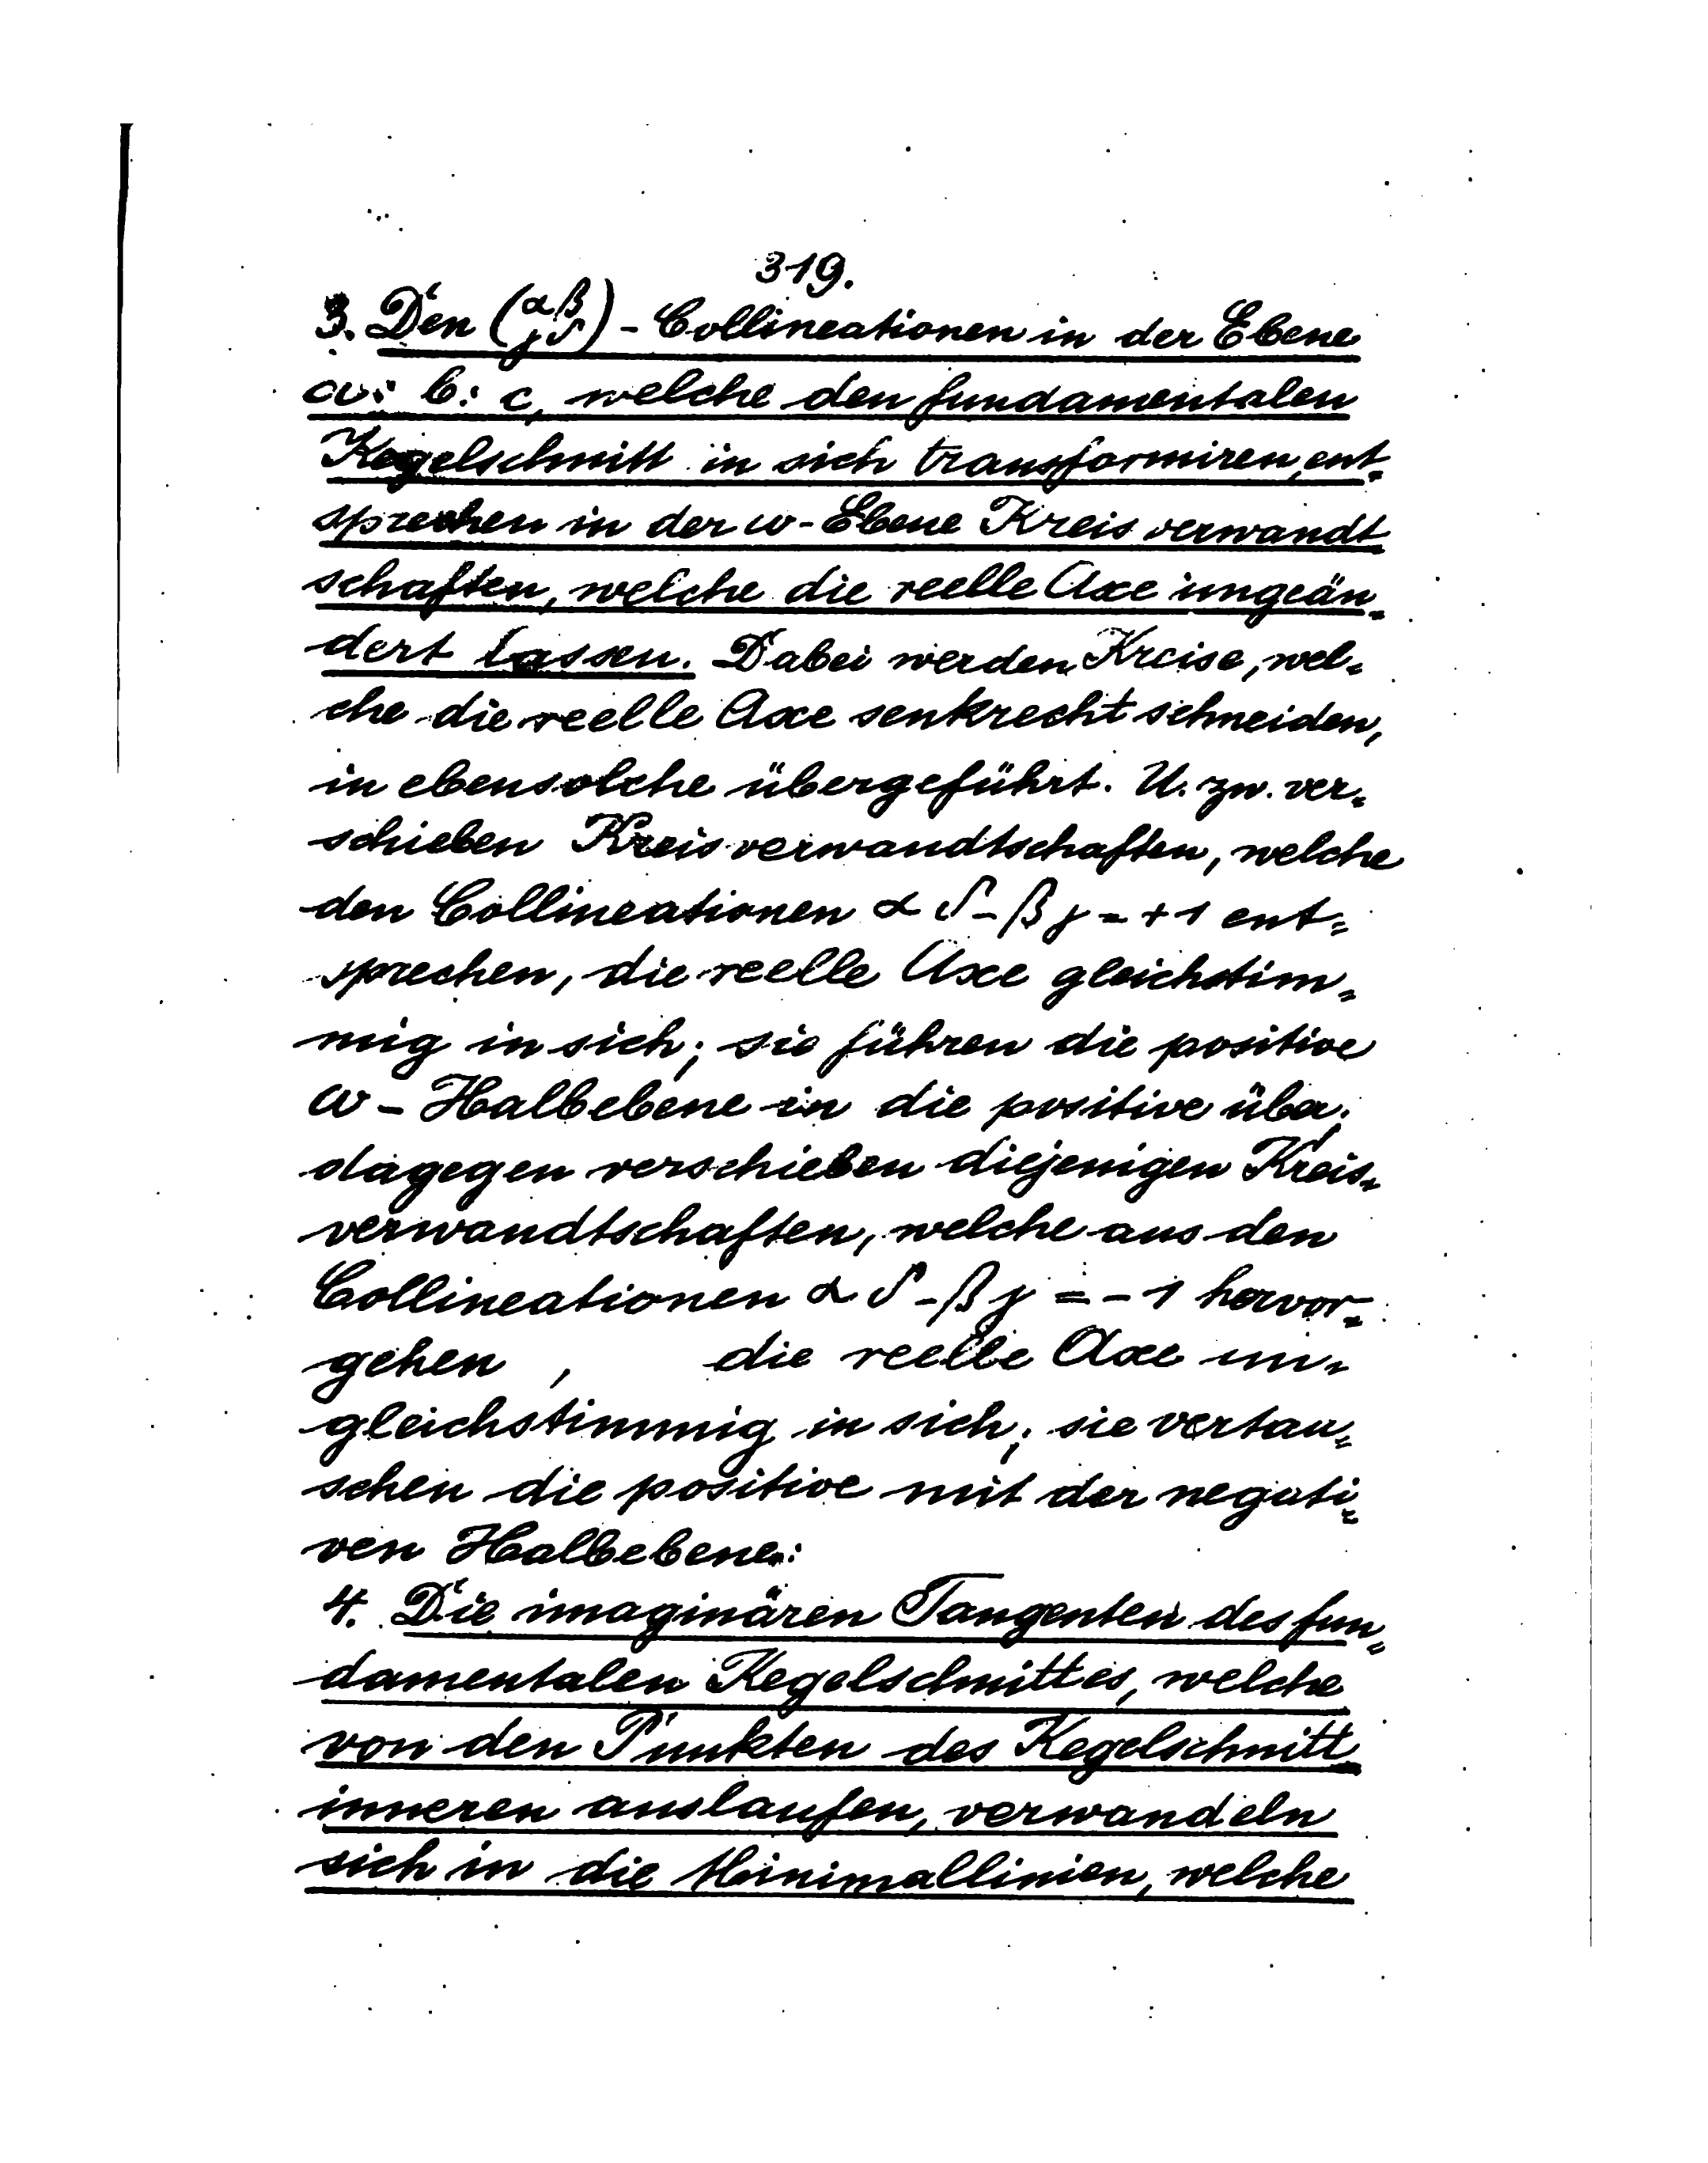 319.
3. Den (αβ γδ) - Collineationen in der Ebene
a: b: c, welche den fundamentalen
Kegelschnitt in sich transformiren, ent-
sprechen in der ω-Ebene Kreisverwandt
schaften, welche die reelle Axe ungeän-
dert lassen. Dabei werden Kreise, wel-
che die reelle Axe senkrecht schneiden,
in ebensolche übergeführt. U. zw. ver-
schieben Kreisverwandtschaften, welche
den Collineationen αδ-βγ=+1 ent-
sprechen, die reelle Axe gleichstim-
mig in sich; sie führen die positive
ω-Halbebene in die positive über;
dagegen verschieben diejenigen Kreis-
verwandtschaften, welche aus den
Collineationen αδ-βγ=-1 hervor-
gehen , die reelle Axe un-
gleichstimmig in sich; sie vertau-
schen die positive mit der negati-
ven Halbebene.
4. Die imaginären Tangenten des fun-
damentalen Kegelschnittes, welche
von den Punkten des Kegelschnitt
inneren auslaufen, verwandeln
sich in die Minimallinien, welche